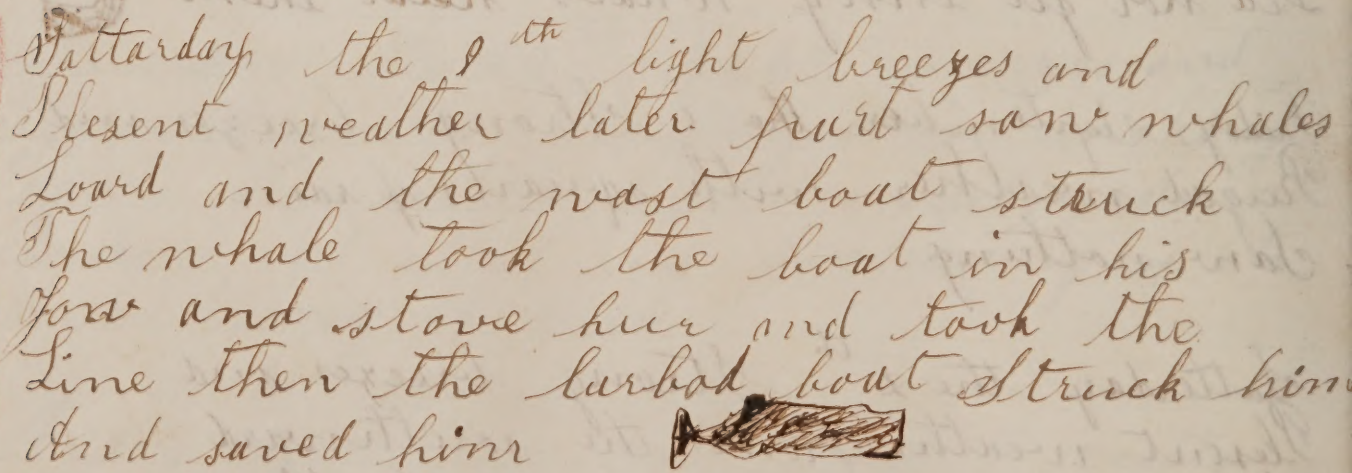 Sattarday the 8th light breezes and
Plesent weather later part saw whales
Loard and the wast boat struck
The whale took the boat in his
Jow and stove hur and took the
Line then the larbod boat Struck him
And saved him